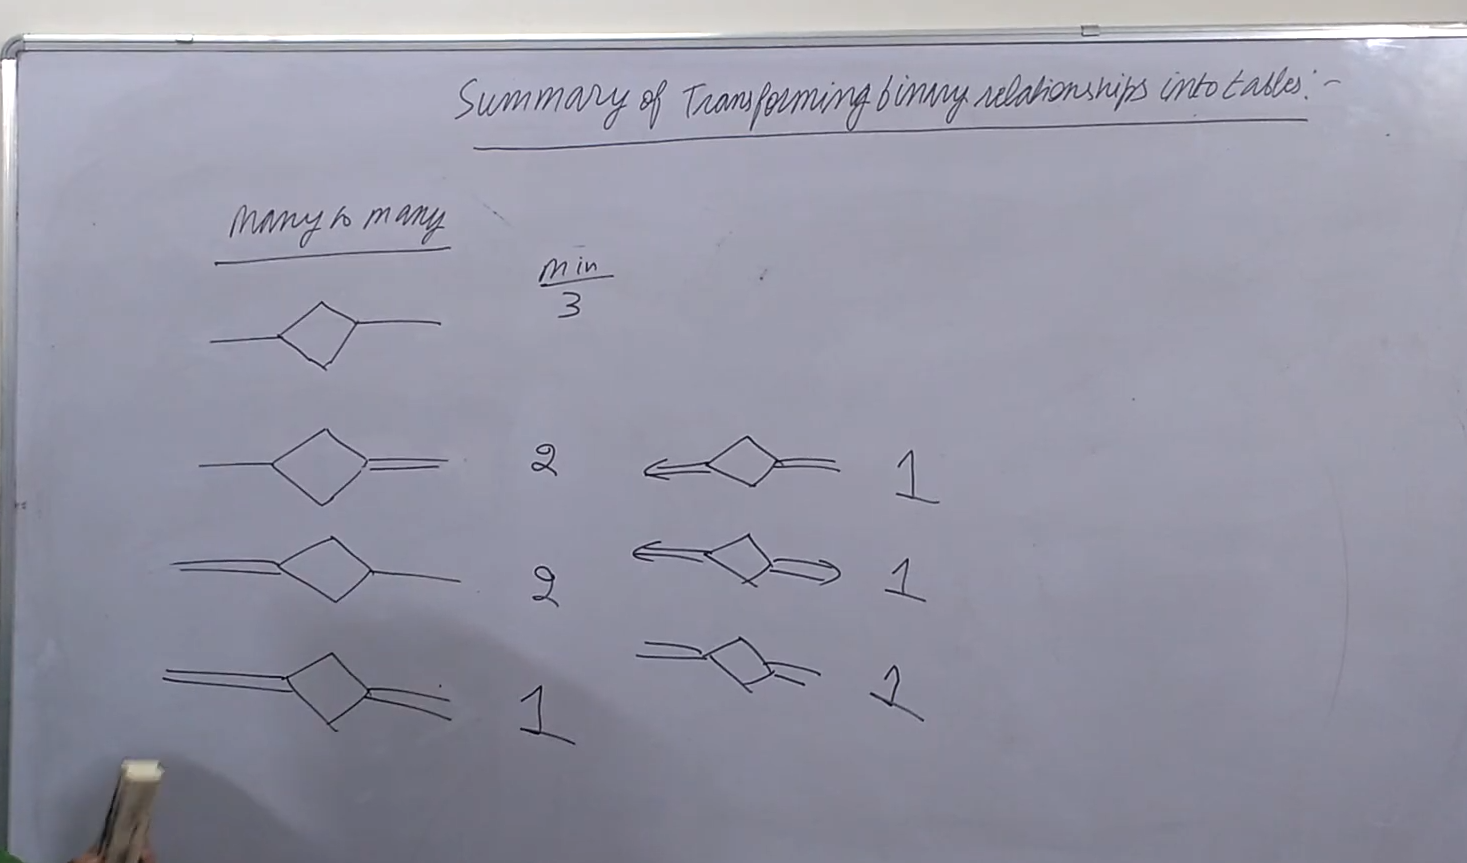 Summary of Transforming binary relationships into tables:-
Many to many
min
3
2
1
2
1
1
1